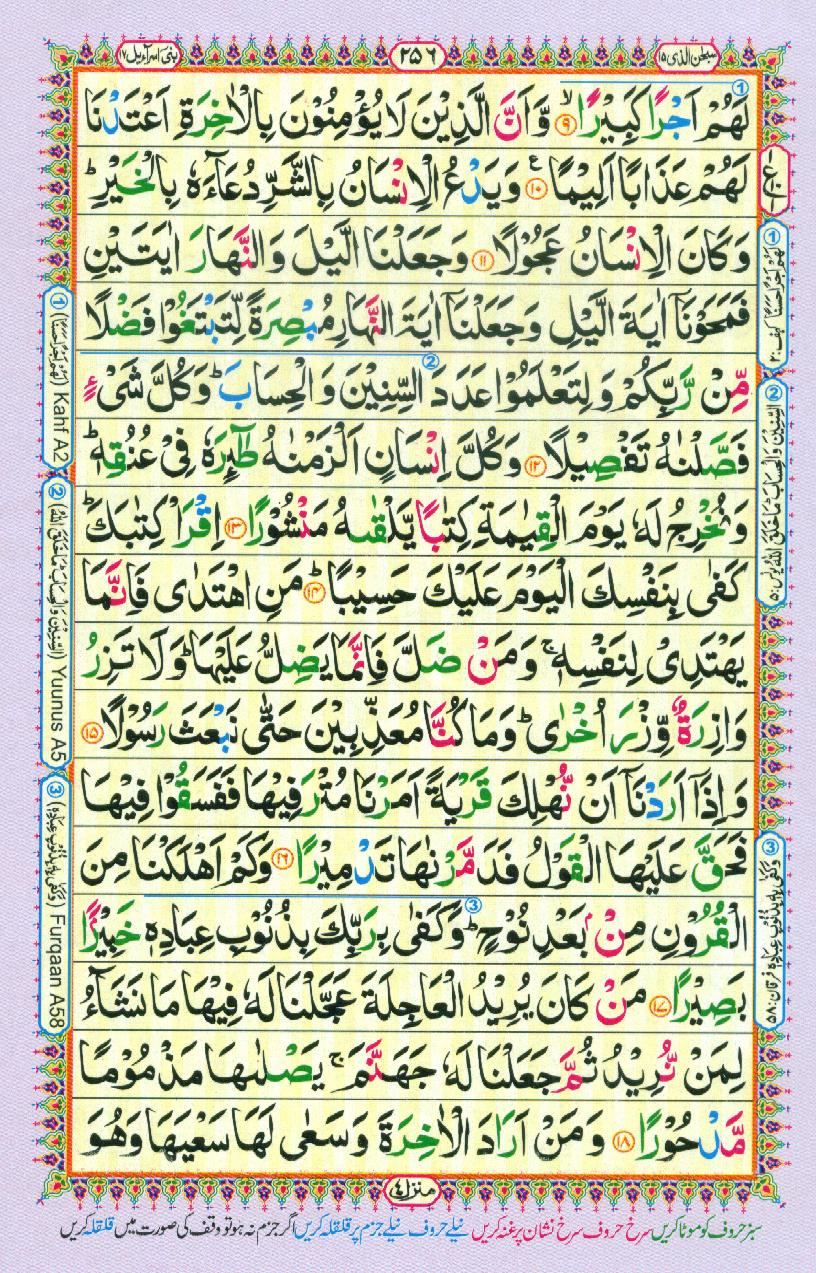 سبحٰن الذی ۱۵
۲۵۶
بنیٓ اسرآءیل ۱۷
لَهُمْ اَجْرًا كَبِیْرًاۙ ۹ وَّ اَنَّ الَّذِیْنَ لَا یُؤْمِنُوْنَ بِالْاٰخِرَةِ اَعْتَدْنَا
لَهُمْ عَذَابًا اَلِیْمًا ۧ ۱۰ وَ یَدْعُ الْاِنْسَانُ بِالشَّرِّ دُعَآءَهٗ بِالْخَیْرِ ؕ
وَ كَانَ الْاِنْسَانُ عَجُوْلًا ۱۱ وَ جَعَلْنَا الَّیْلَ وَ النَّهَارَ اٰیَتَیْنِ
فَمَحَوْنَاۤ اٰیَةَ الَّیْلِ وَ جَعَلْنَاۤ اٰیَةَ النَّهَارِ مُبْصِرَةً لِّتَبْتَغُوْا فَضْلًا
مِّنْ رَّبِّكُمْ وَ لِتَعْلَمُوْا عَدَدَ السِّنِیْنَ وَ الْحِسَابَ ؕ وَ كُلَّ شَیْءٍ
فَصَّلْنٰهُ تَفْصِیْلًا ۱۲ وَ كُلَّ اِنْسَانٍ اَلْزَمْنٰهُ طٰٓىِٕرَهٗ فِیْ عُنُقِهٖ ؕ
وَ نُخْرِجُ لَهٗ یَوْمَ الْقِیٰمَةِ كِتٰبًا یَّلْقٰىهُ مَنْشُوْرًا ۱۳ اِقْرَاْ كِتٰبَكَ ؕ
كَفٰی بِنَفْسِكَ الْیَوْمَ عَلَیْكَ حَسِیْبًا ؕ ۱۴ مَنِ اهْتَدٰی فَاِنَّمَا
یَهْتَدِیْ لِنَفْسِهٖ ۚ وَ مَنْ ضَلَّ فَاِنَّمَا یَضِلُّ عَلَیْهَا ؕ وَ لَا تَزِرُ
وَازِرَةٌ وِّزْرَ اُخْرٰی ؕ وَ مَا كُنَّا مُعَذِّبِیْنَ حَتّٰی نَبْعَثَ رَسُوْلًا ۱۵
وَ اِذَاۤ اَرَدْنَاۤ اَنْ نُّهْلِكَ قَرْیَةً اَمَرْنَا مُتْرَفِیْهَا فَفَسَقُوْا فِیْهَا
فَحَقَّ عَلَیْهَا الْقَوْلُ فَدَمَّرْنٰهَا تَدْمِیْرًا ۱۶ وَ كَمْ اَهْلَكْنَا مِنَ
الْقُرُوْنِ مِنْۢ بَعْدِ نُوْحٍ ؕ وَ كَفٰی بِرَبِّكَ بِذُنُوْبِ عِبَادِهٖ خَبِیْرًۢا
بَصِیْرًا ۱۷ مَنْ كَانَ یُرِیْدُ الْعَاجِلَةَ عَجَّلْنَا لَهٗ فِیْهَا مَا نَشَآءُ
لِمَنْ نُّرِیْدُ ثُمَّ جَعَلْنَا لَهٗ جَهَنَّمَ ۚ یَصْلٰىهَا مَذْمُوْمًا
مَّدْحُوْرًا ۱۸ وَ مَنْ اَرَادَ الْاٰخِرَةَ وَ سَعٰی لَهَا سَعْیَهَا وَ هُوَ
① لَهُمْ اَجْرًا حَسَنًا کہف: ۲
② السِّنِیْنَ وَالْحِسَابَ مَا خَلَقَ اللّٰهُ یونس: ۵
③ وَكَفٰی بِهٖ بِذُنُوْبِ عِبَادِهٖ فرقان: ۵۸
① (لَهُمْ اَجْرًا حَسَنًا) Kahf A2
② (السِّنِیْنَ وَالْحِسَابَ مَا خَلَقَ اللّٰهُ) Yuunus A5
③ (وَكَفٰی بِهٖ بِذُنُوْبِ عِبَادِهٖ) Furqaan A58
منزل ۴
سبز حروف کو موٹا کریں سرخ حروف سرخ نشان پر غنہ کریں نیلے حروف نیلے جزم پر قلقلہ کریں اگر جزم نہ ہو تو وقف کی صورت میں قلقلہ کریں